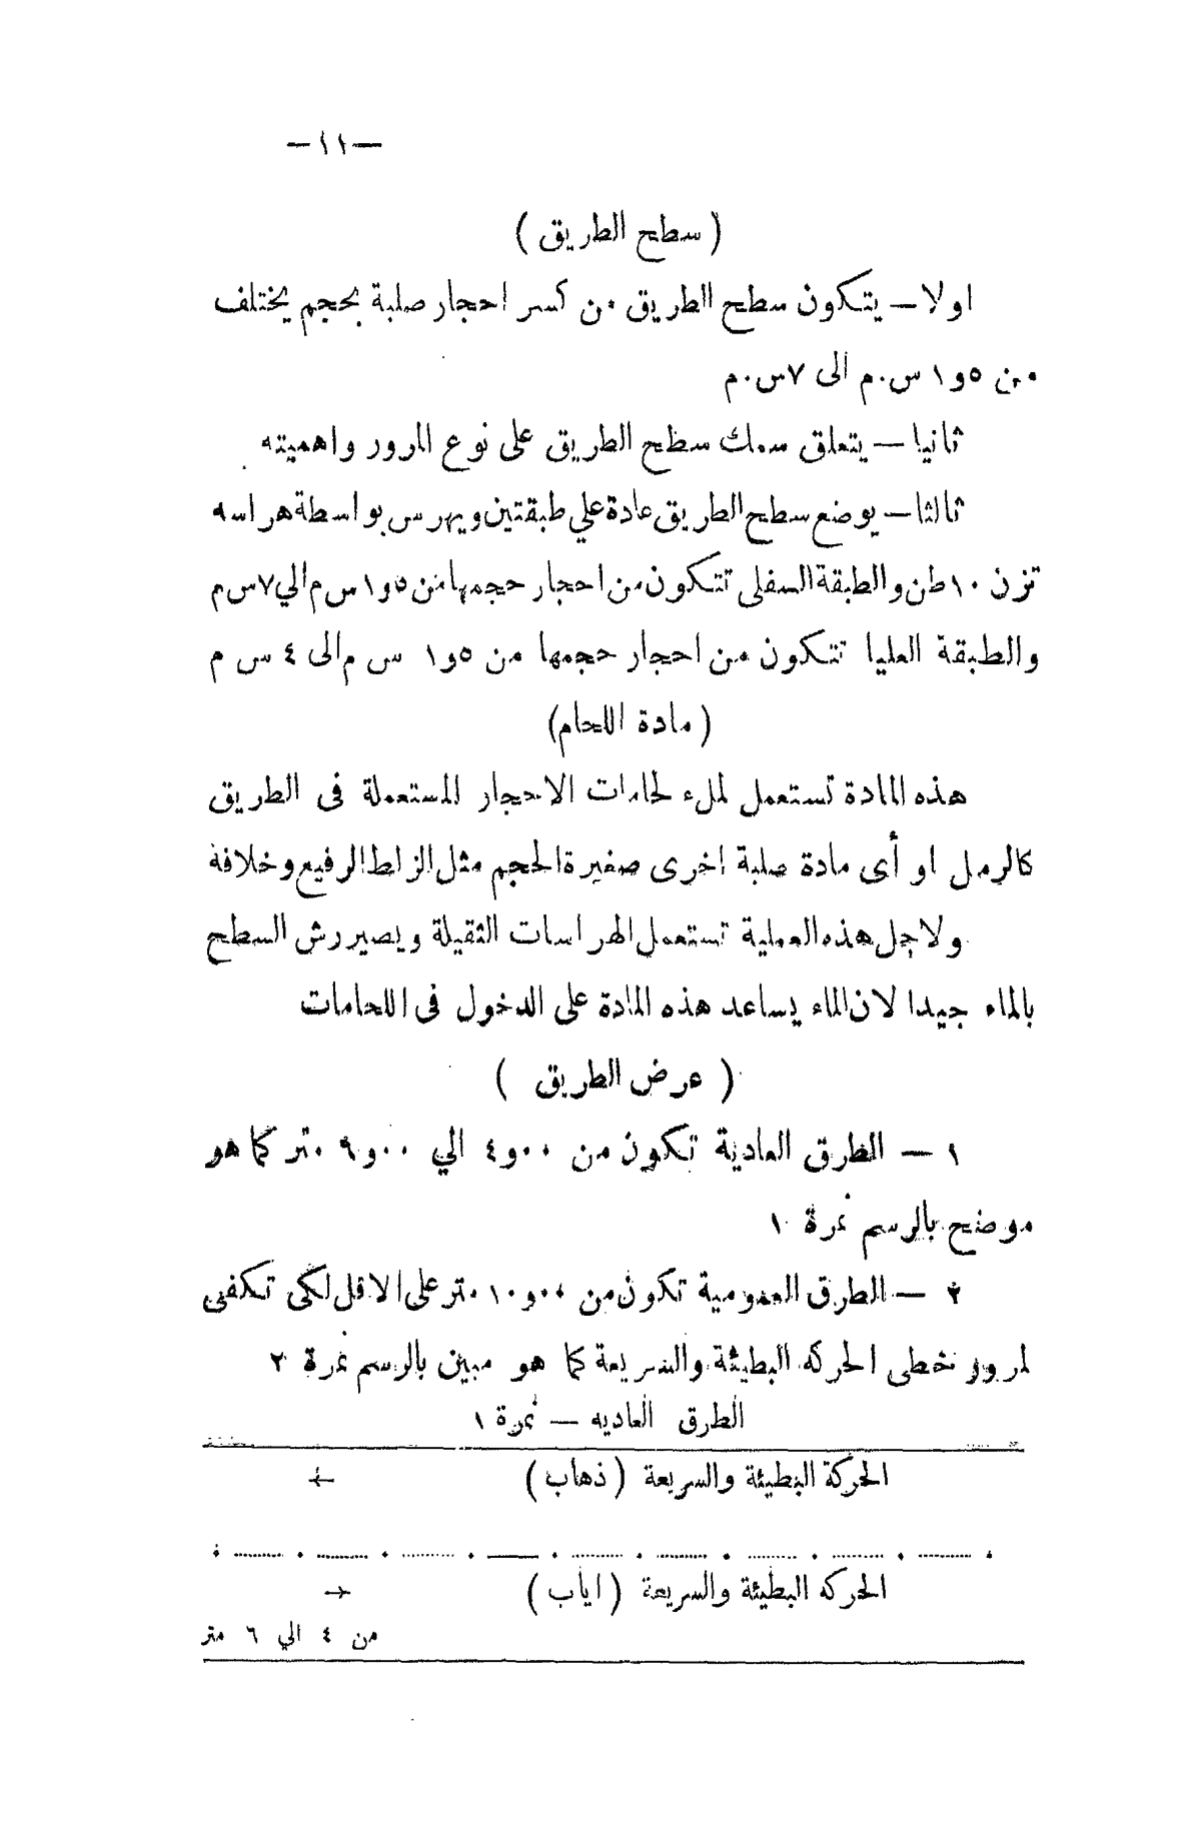 —١١—
( سطح الطريق )
اولا — يتكون سطح الطريق من كسر احجار صلبة بحجم يختلف
من ٥و١ س.م الى ٧س.م
ثانيا — يتعلق سمك سطح الطريق على نوع المرور واهميته
ثالثا — يوضع سطح الطريق عادة علي طبقتين ويهرس بواسطة هراسه
تزن ١٠ طن والطبقة السفلى تتكون من احجار حجمها من ٥و١ س م الي ٧ س م
والطبقة العليا تتكون من احجار حجمها من ٥و١ س م الى ٤ س م
( مادة اللحام)
هذه المادة تستعمل لملء لحامات الاحجار المستعملة فى الطريق
كالرمل او أى مادة صلبة اخرى صغيرة الحجم مثل الزلط الرفيع وخلافة
ولاجل هذه العملية تستعمل الهراسات الثقيلة ويصير رش السطح
بالماء جيدا لان الماء يساعد هذه المادة على الدخول فى اللحامات
( عرض الطريق )
١ — الطرق العادية تكون من ٠٠و٤ الي ٠٠و٩ متر كما هو
موضح بالرسم نمرة ١
٢ — الطرق العمومية تكون من ٠٠و١٠ متر على الاقل لكى تكفى
لمرور خطى الحركه البطيئة والسريعة كما هو مبين بالرسم نمرة ٢
الطرق العاديه — نمرة ١
الحركة البطيئة والسريعة ( ذهاب ) ←
الحركه البطيئة والسريعة ( اياب ) →
من ٤ الي ٦ متر